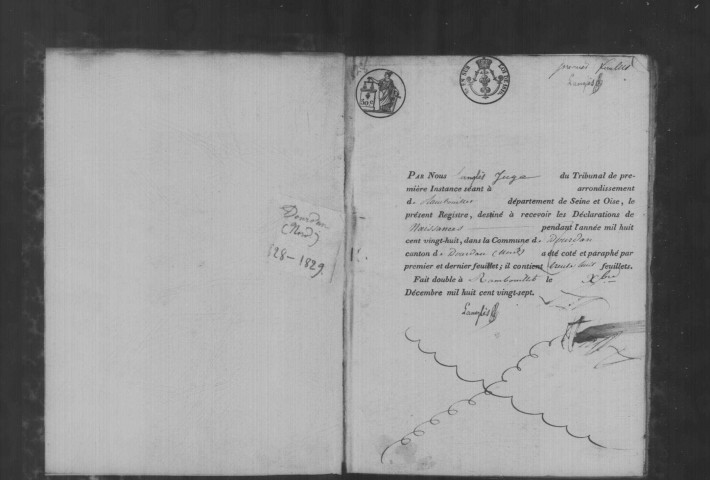 Dourdan
(Nord)
1828-1829
premier feuillet
Langlois
PAR NOUS Langlois Juge du Tribunal de pre-
mière Instance séant à arrondissement
d Rambouillet département de Seine et Oise, le
présent Registre, destiné à recevoir les Déclarations de
Naissances pendant l'année mil huit
cent vingt-huit, dans la Commune de Dourdan
canton de Dourdan (Nord) a été coté et paraphé par
premier et dernier feuillet; il contient feuillets.
Fait double à Rambouillet le Xbre
Décembre mil huit cent vingt-sept.
Langlois